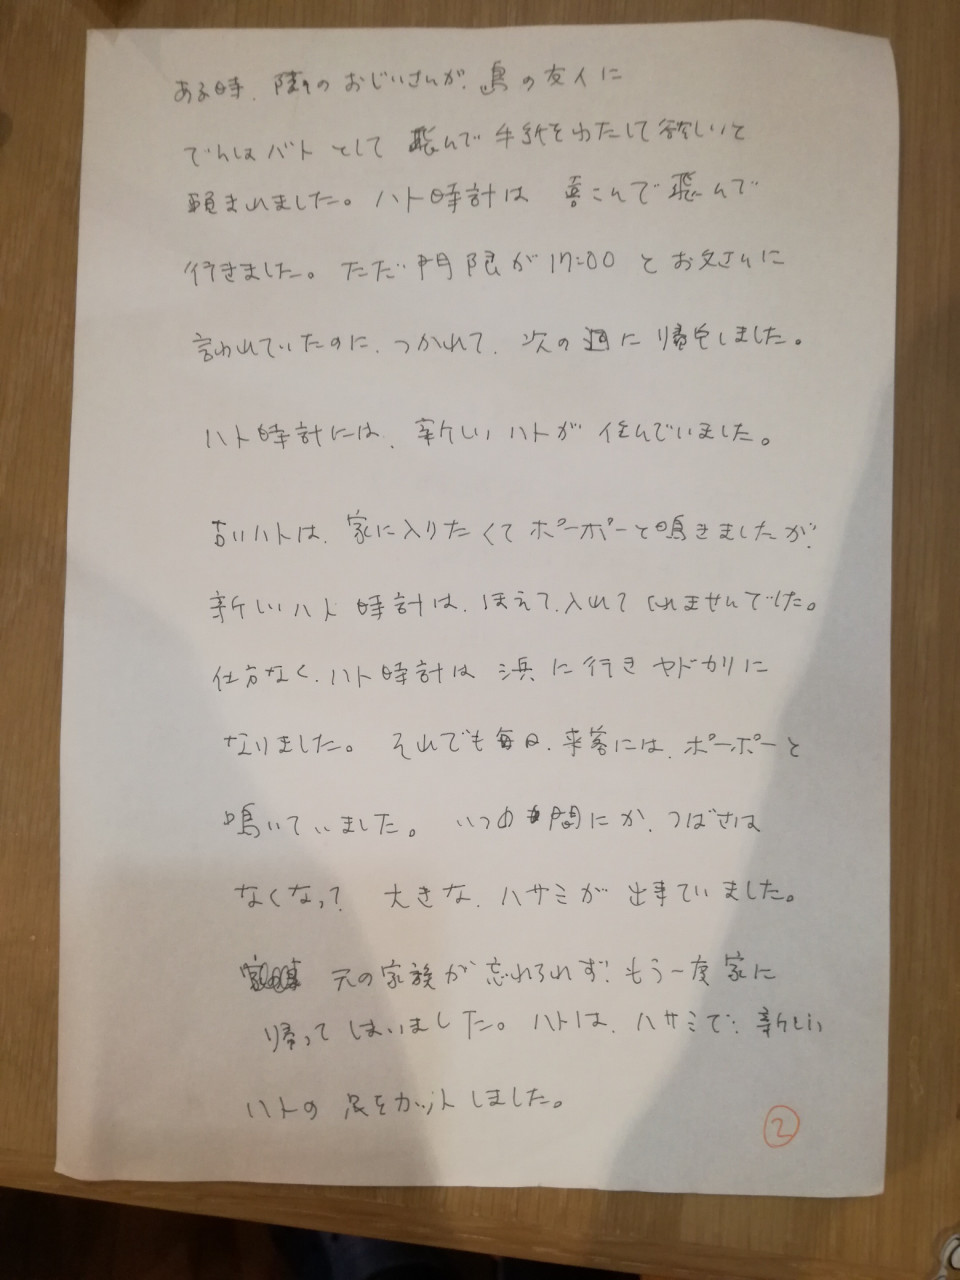 ある時、隣のおじいさんが、島の友人に
でんしょバトとして飛んで手紙をわたして欲しいと
頼まれました。ハト時計は喜こんで飛んで
行きました。ただ門限が17:00とお父さんに
言われていたのに、つかれて、次の週に帰宅しました。
ハト時計には、新しいハトが住んでいました。
古いハトは、家に入りたくてポーポーと鳴きましたが、
新しいハト時計は、ほえて、入れてくれませんでした。
仕方なく、ハト時計は浜に行きヤドカリに
なりました。それでも毎日、来客には、ポーポーと
鳴いていました。いつの間にか、つばさは
なくなって、大きな、ハサミが出来ていました。
元の家族が忘れられず、もう一度家に
帰ってしまいました。ハトは、ハサミで、新しい
ハトの足をカットしました。
2